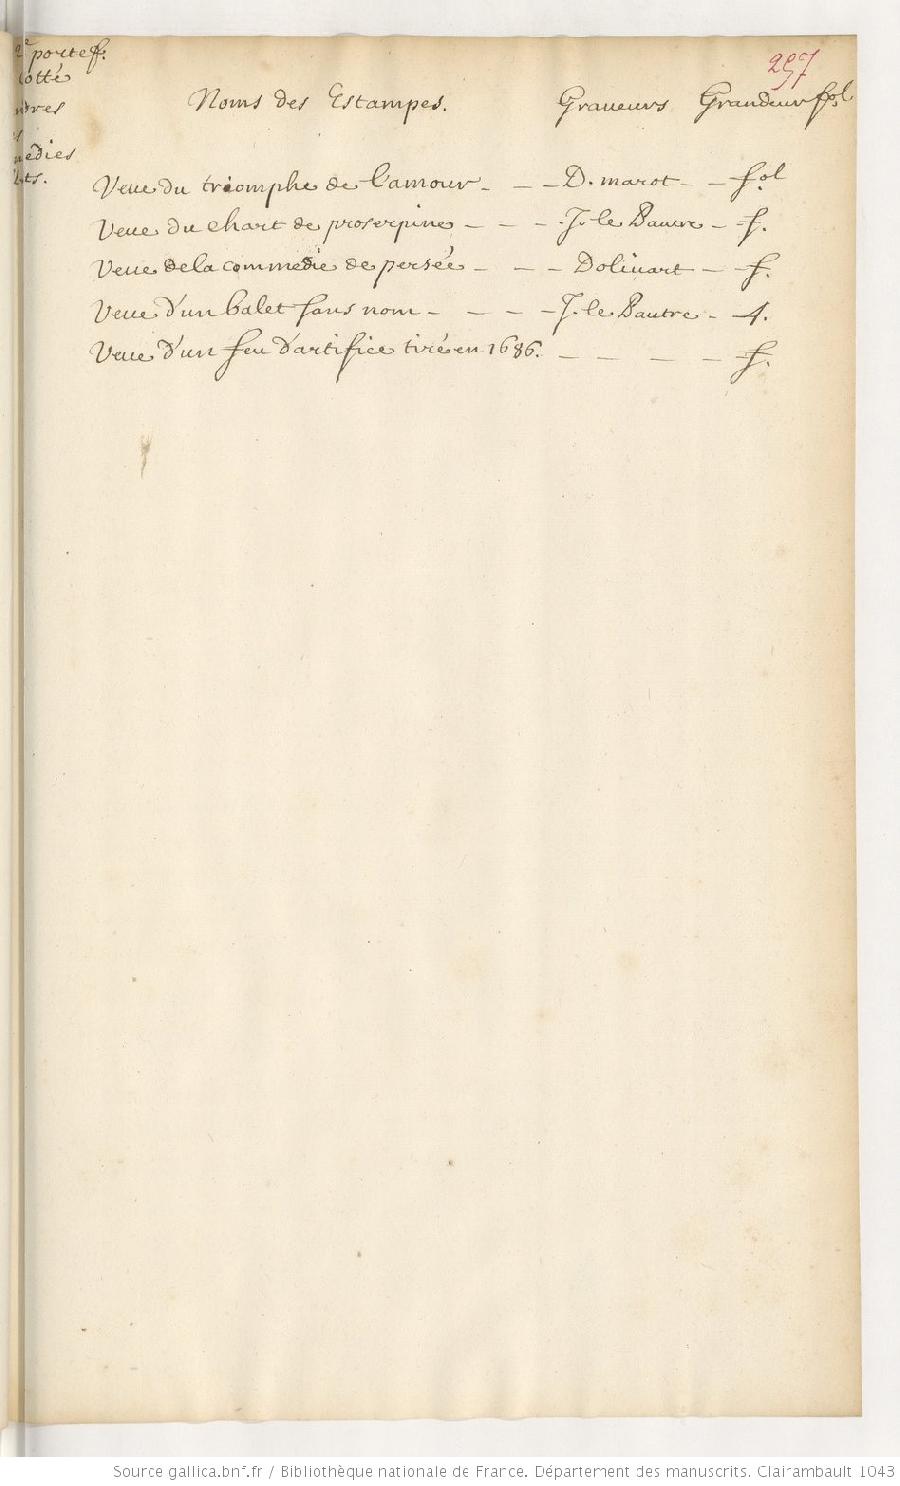 297
2e portef.
cotté
Noms des Estampes. Graueurs Grandeur fol
Veue du triomphe de l'amour - - - D. marot - - fol
Veue du chart de proserpine - - - J. le Pautre - f.
Veue dela commedie de persée - - - Doliuart - f.
Veue d'un balet sans nom - - - - J. le Pautre - f.
Veue d'un feu d'artifice tiré en 1686. - - - - f.
Source gallica.bnf.fr / Bibliothèque nationale de France. Département des manuscrits. Clairambault 1043